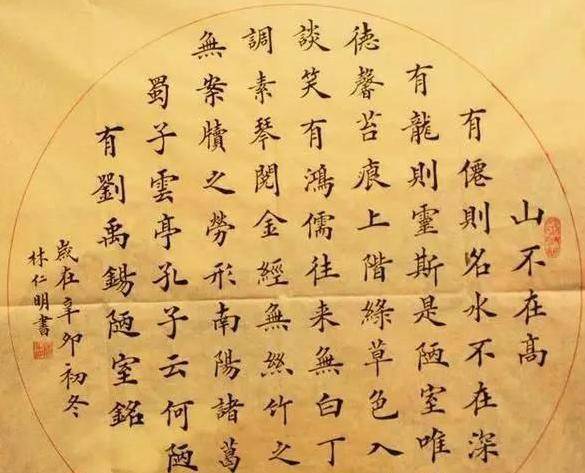 山不在高
有僊則名水不在深
有龍則靈斯是陋室唯
德馨苔痕上階綠草色入
談笑有鴻儒往来無白丁
調素琴閱金經無絲竹之
無案牘之勞形南陽諸葛
蜀子雲亭孔子云何陋
有劉禹錫陋室銘
歲在辛卯初冬
林仁明書